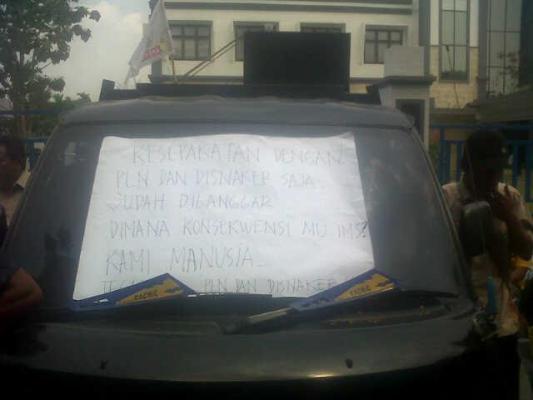 KESEPAKATAN DENGAN
PLN DAN DISNAKER SAJA
SUDAH DILANGGAR
DIMANA KONSEKWENSI MU IMS?
KAMI MANUSIA..
PLN DAN DISNAKER